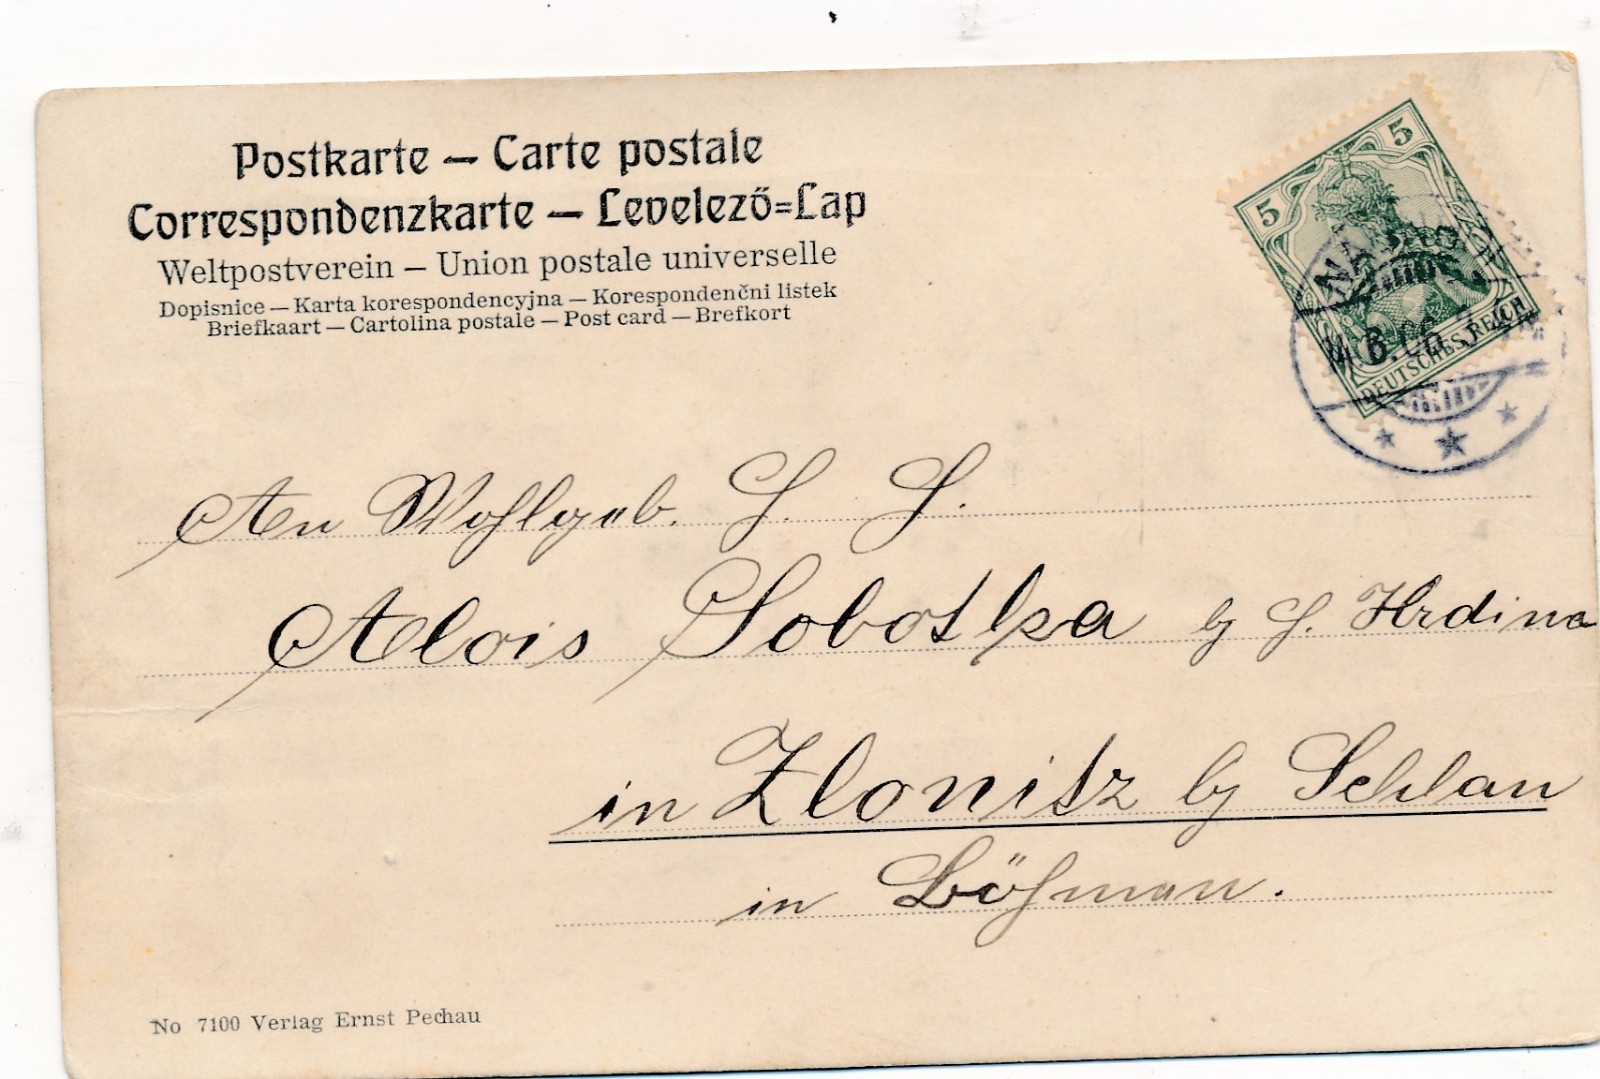 Postkarte — Carte postale
Correspondenzkarte — Levelező=Lap
Weltpostverein — Union postale universelle
Dopisnice — Karta korespondencyjna — Korespondenčni listek
Briefkaart — Cartolina postale — Post card — Brefkort
5 5
DEUTSCHES REICH
An Wohlgeb. H. H.
Alois Sobotka by H. Hrdina
in Zlonitz by Schlan
in Böhmen.
No 7100 Verlag Ernst Pechau